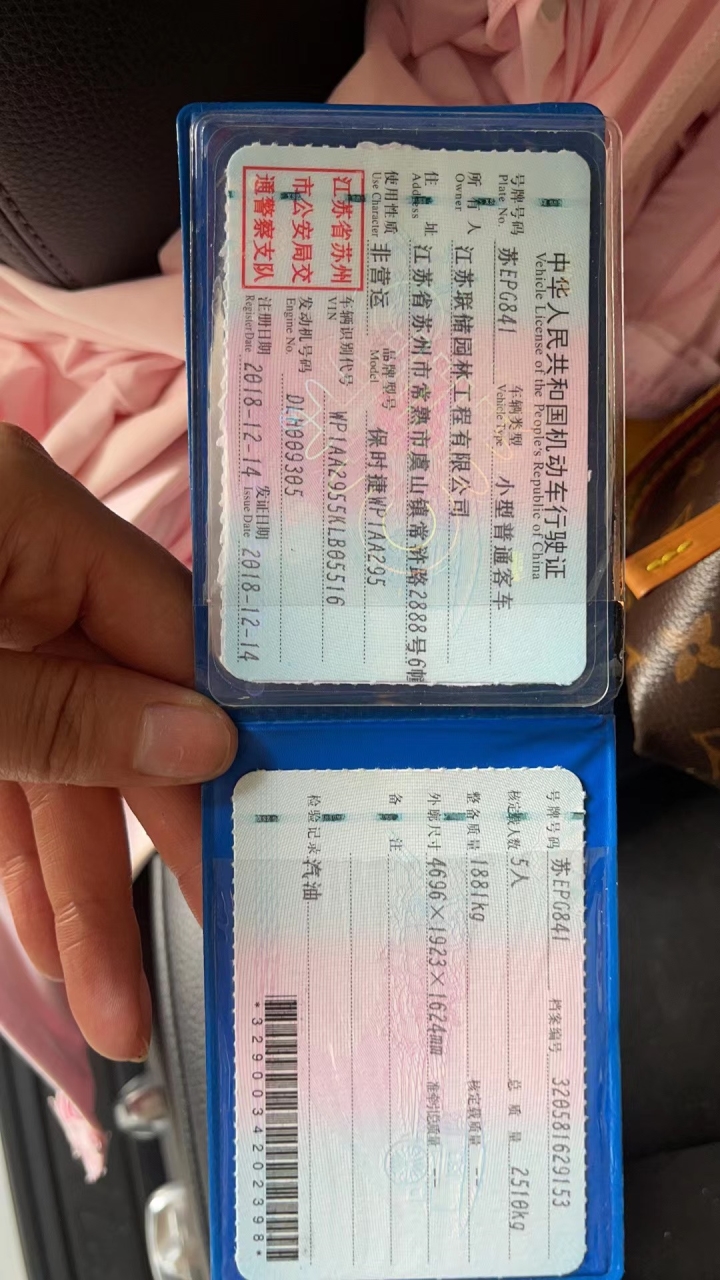 中华人民共和国机动车行驶证
Vehicle License of the People's Republic of China
号牌号码 苏EPG841 车辆类型 小型普通客车
Plate No. Vehicle Type
所有人 江苏联储园林工程有限公司
Owner
住址 江苏省苏州市常熟市虞山镇常浒路2888号6幢
Address
使用性质 非营运 品牌型号 保时捷WP1AA295
Use Character Model
江苏省苏州
市公安局交
通警察支队
车辆识别代号 WP1AA2955KLB05516
VIN
发动机号码 DLH009305
Engine No.
注册日期 2018-12-14 发证日期 2018-12-14
Register Date Issue Date
号牌号码 苏EPG841 档案编号 320581629153
核定载人数 5人 总质量 2510kg
整备质量 1881kg 核定载质量 --
外廓尺寸 4696×1923×1624mm 准牵引总质量 --
备注
检验记录 汽油
*3290034202398*